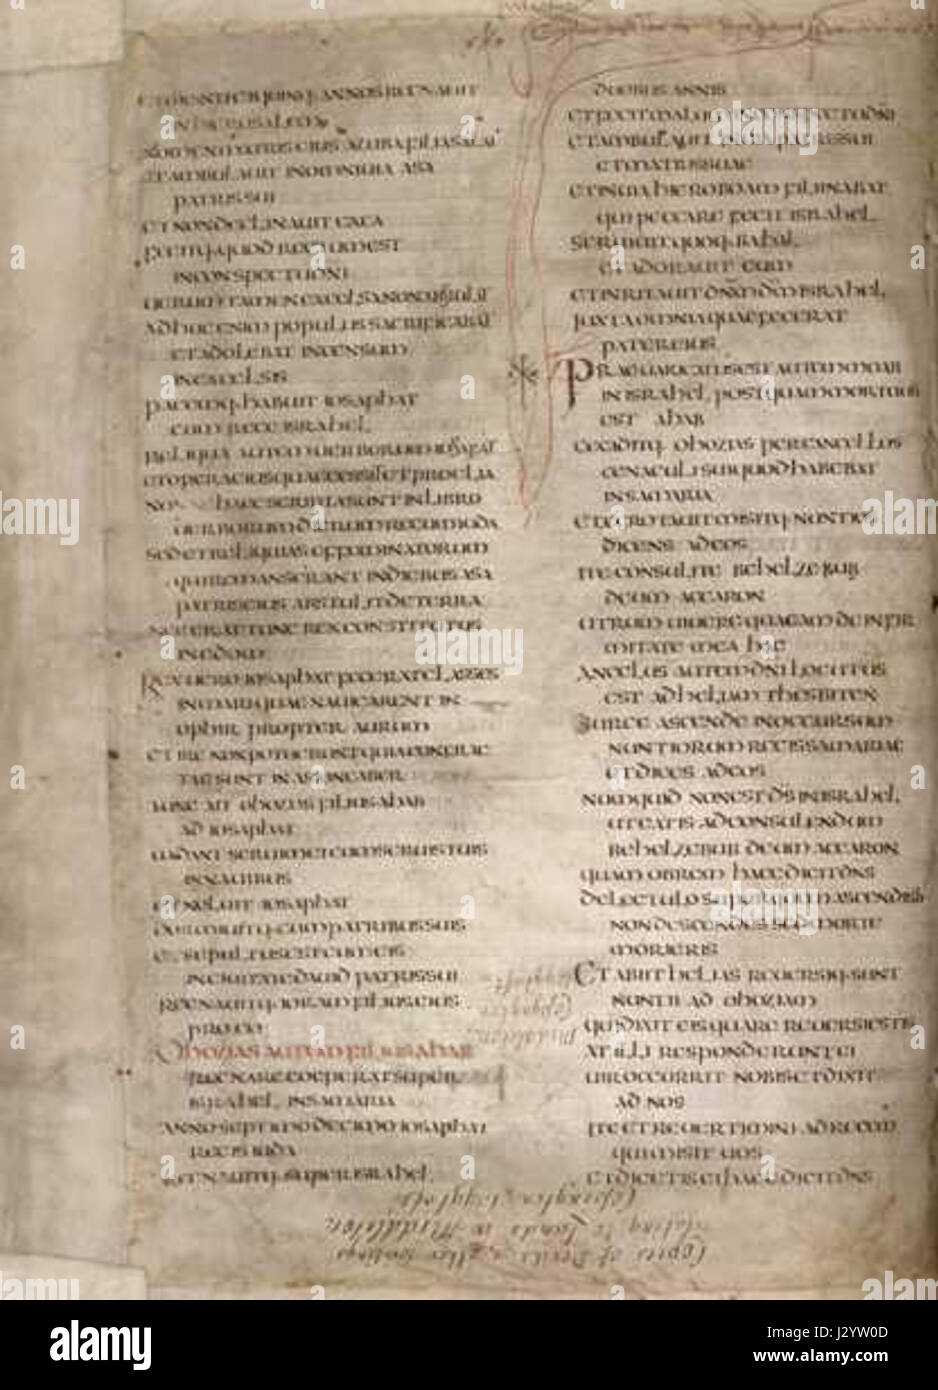 ET UIGINTI ET QUINQ· ANNOS REGNAUIT
IN HIERUSALEM
NOMEN MATRIS EIUS AZUBA FILIA SALAI
ET AMBULAUIT IN OMNI UIA ASA
PATRIS SUI
ET NON DECLINAUIT EX EA
FECITQ· QUOD RECTUM EST
IN CONSPECTU DNI
UERUM TAMEN EXCELSA NON ABSTULIT
ADHUC ENIM POPULUS SACRIFICABAT
ET ADOLEBAT INCENSUM
IN EXCELSIS
PACEMQ· HABUIT IOSAPHAT
CUM REGE ISRAHEL
RELIQUA AUTEM UERBORUM IOSAPHAT
ET OPERA EIUS QUAE GESSIT ET PROELIA
NONNE HAEC SCRIPTA SUNT IN LIBRO
UERBORUM DIERUM REGUM IUDA
SED ET RELIQUIAS EFFEMINATORUM
QUI REMANSERANT IN DIEBUS ASA
PATRIS EIUS ABSTULIT DE TERRA
NEC ERAT TUNC REX CONSTITUTUS
IN EDOM
REX UERO IOSAPHAT FECERAT CLASSES
IN MARI QUAE NAUIGARENT IN
OPHIR PROPTER AURUM
ET IRE NON POTUERUNT QUIA CONFRAC
TAE SUNT IN ASIONGABER
TUNC AIT OHOZIAS FILIUS AHAB
AD IOSAPHAT
UADANT SERUI MEI CUM SERUIS TUIS
IN NAUIBUS
ET NOLUIT IOSAPHAT
DORMIUITQ· CUM PATRIBUS SUIS
ET SEPULTUS EST CUM EIS
IN CIUITATE DAUID PATRIS SUI
REGNAUITQ· IORAM FILIUS EIUS
PRO EO
OHOZIAS AUTEM FILIUS AHAB
REGNARE COEPERAT SUPER
ISRAHEL IN SAMARIA
ANNO SEPTIMO DECIMO IOSAPHAT
REGIS IUDA
REGNAUITQ· SUPER ISRAHEL
DUOBUS ANNIS
ET FECIT MALUM IN CONSPECTU DNI
ET AMBULAUIT IN UIA PATRIS SUI
ET MATRIS SUAE
ET IN UIA HIEROBOAM FILII NABAT
QUI PECCARE FECIT ISRAHEL
SERUIUIT QUOQ· BAHAL
ET ADORAUIT EUM
ET INRITAUIT DNM DM ISRAHEL
IUXTA OMNIA QUAE FECERAT
PATER EIUS
PRAEUARICATUS EST AUTEM MOAB
IN ISRAHEL POSTQUAM MORTUUS
EST AHAB
CECIDITQ· OHOZIAS PER CANCELLOS
CENACULI SUI QUOD HABEBAT
IN SAMARIA
ET EGROTAUIT MISITQ· NUNTIOS
DICENS AD EOS
ITE CONSULITE BEHELZEBUB
DEUM ACCARON
UTRUM UIUERE QUAEAM DE INFIR
MITATE MEA HAC
ANGELUS AUTEM DNI LOCUTUS
EST AD HELIAM THESBITEN
SURGE ASCENDE IN OCCURSUM
NUNTIORUM REGIS SAMARIAE
ET DICES AD EOS
NUMQUID NON EST DS IN ISRAHEL
UT EATIS AD CONSULENDUM
BEHELZEBUB DEUM ACCARON
QUAM OB REM HAEC DICIT DNS
DE LECTULO SUPER QUEM ASCENDISTI
NON DESCENDES SED MORTE
MORIERIS
ET ABIIT HELIAS REUERSIQ· SUNT
NUNTII AD OHOZIAM
QUI DIXIT EIS QUARE REUERSI ESTIS
AT ILLI RESPONDERUNT EI
UIR OCCURRIT NOBIS ET DIXIT
AD NOS
ITE ET REUERTIMINI AD REGEM
QUI MISIT UOS
ET DICETIS EI HAEC DICIT DNS
Copies of Deeds & other writings
relating to Lands in Middleton
alamy
Image ID: J2YW0D
www.alamy.com